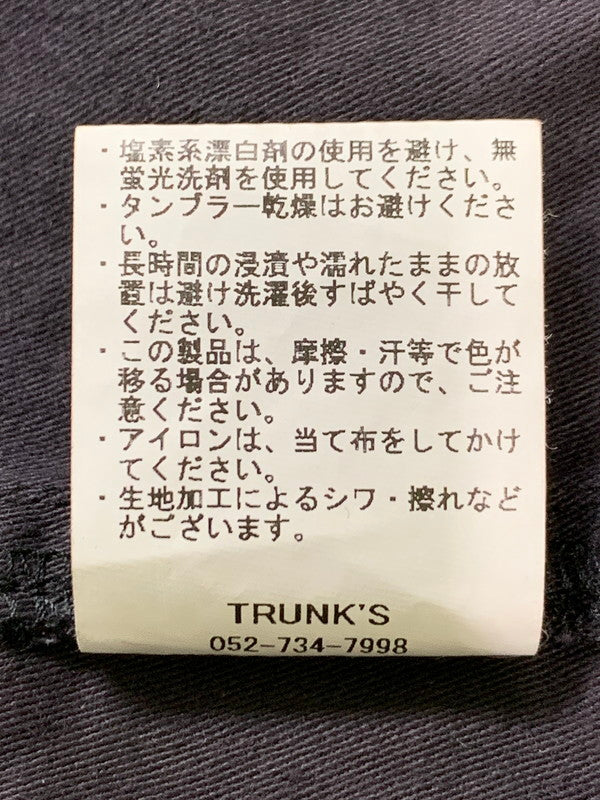 ・塩素系漂白剤の使用を避け、無
蛍光洗剤を使用してください。
・タンブラー乾燥はお避けくださ
い。
・長時間の浸漬や濡れたままの放
置は避け洗濯後すばやく干して
ください。
・この製品は、摩擦・汗等で色が
移る場合がありますので、ご注
意ください。
・アイロンは、当て布をしてかけ
てください。
・生地加工によるシワ・擦れなど
がございます。
TRUNK'S
052-734-7998